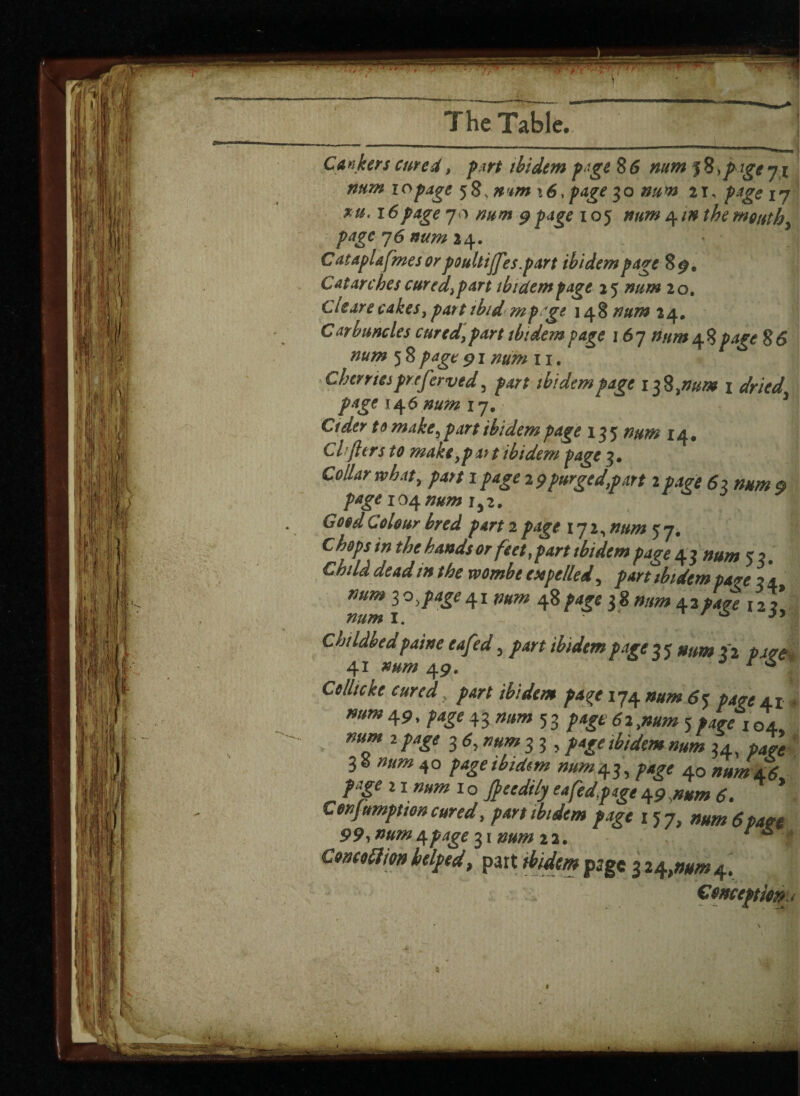 The Table.
Cankers cured, part ibidem page 86 num 58, page 71
num 10 page 58, num 16, page 30 num 21. page 17
nu. 16 page 70 num 9 page 105 num 4 in the mouth,
page 76 num 24.
Cataplasmes or poultisses. part ibidem page 89.
Catarches cured, part ibidem page 25 num 20.
Cleare cakes, part ibid mp ge 148 num 24.
Carbuncles cured, part ibidem page 167 num 48 page 86
num 58 page 91 num 11.
Cherries preserved, part ibidem page 138, num 1 dried,
page 146 num 17.
Cider to make, part ibidem page 135 num 14.
Clisters to make, part ibidem page 3.
Collar what, part 1 page 29 purged, part 2 page 63 num 9
page 104 num 1,2.
Good Colour bred part 2 page 172, num 57.
Chops in the hands or feet, part ibidem page 43 num 53.
Child dead in the wombe expelled, part ibidem page 34,
num 30, page 41 num 48 page 38 num 42 page 123,
num 1.
Childbed paine eased, part ibidem page 35 num 32 page
41 num 49.
Collicke cured, part ibidem page 174 num 65 page 41
num 49, page 43 num 53 page 62, num 5 page 104,
num 2 page 36, num 33, page ibidem num 34, page
38 num 40 page ibidem num 43, page 40 num 46,
page 21 num 10 speedily eased, page 49, num 6.
Consumption cured, part ibidem page 157, num 6 page
99, num 4 page 31 num 22.
Concoction helped, part ibidem page 324, num 4.
Conception